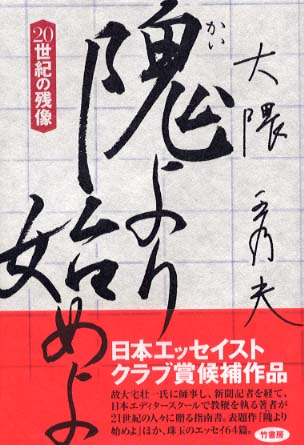 20世紀の残像
隗より
かい
始めよ
大隈秀夫
日本エッセイスト
クラブ賞候補作品
故大宅壮一氏に師事し、新聞記者を経て、
日本エディタースクールで教鞭を執る著者が
21世紀の人々に贈る指南書。表題作「隗より
始めよ」ほか、珠玉のエッセイ64篇。
竹書房